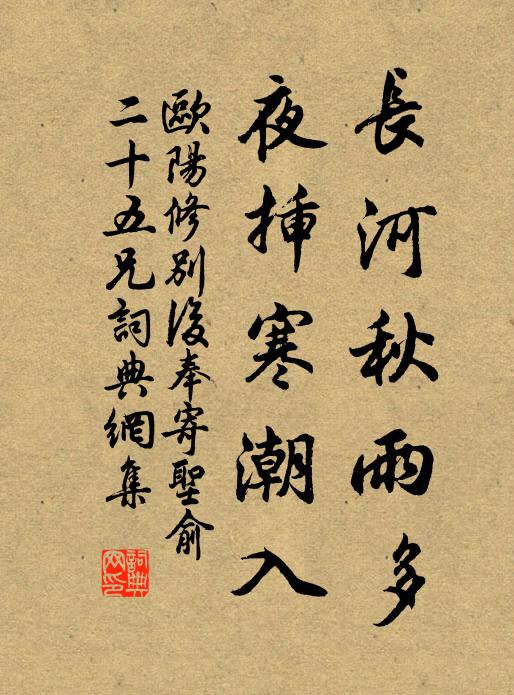 長河秋雨多
夜挿寒潮入
歐陽修別後奉寄聖俞
二十五兄詞典網集
詞典网印